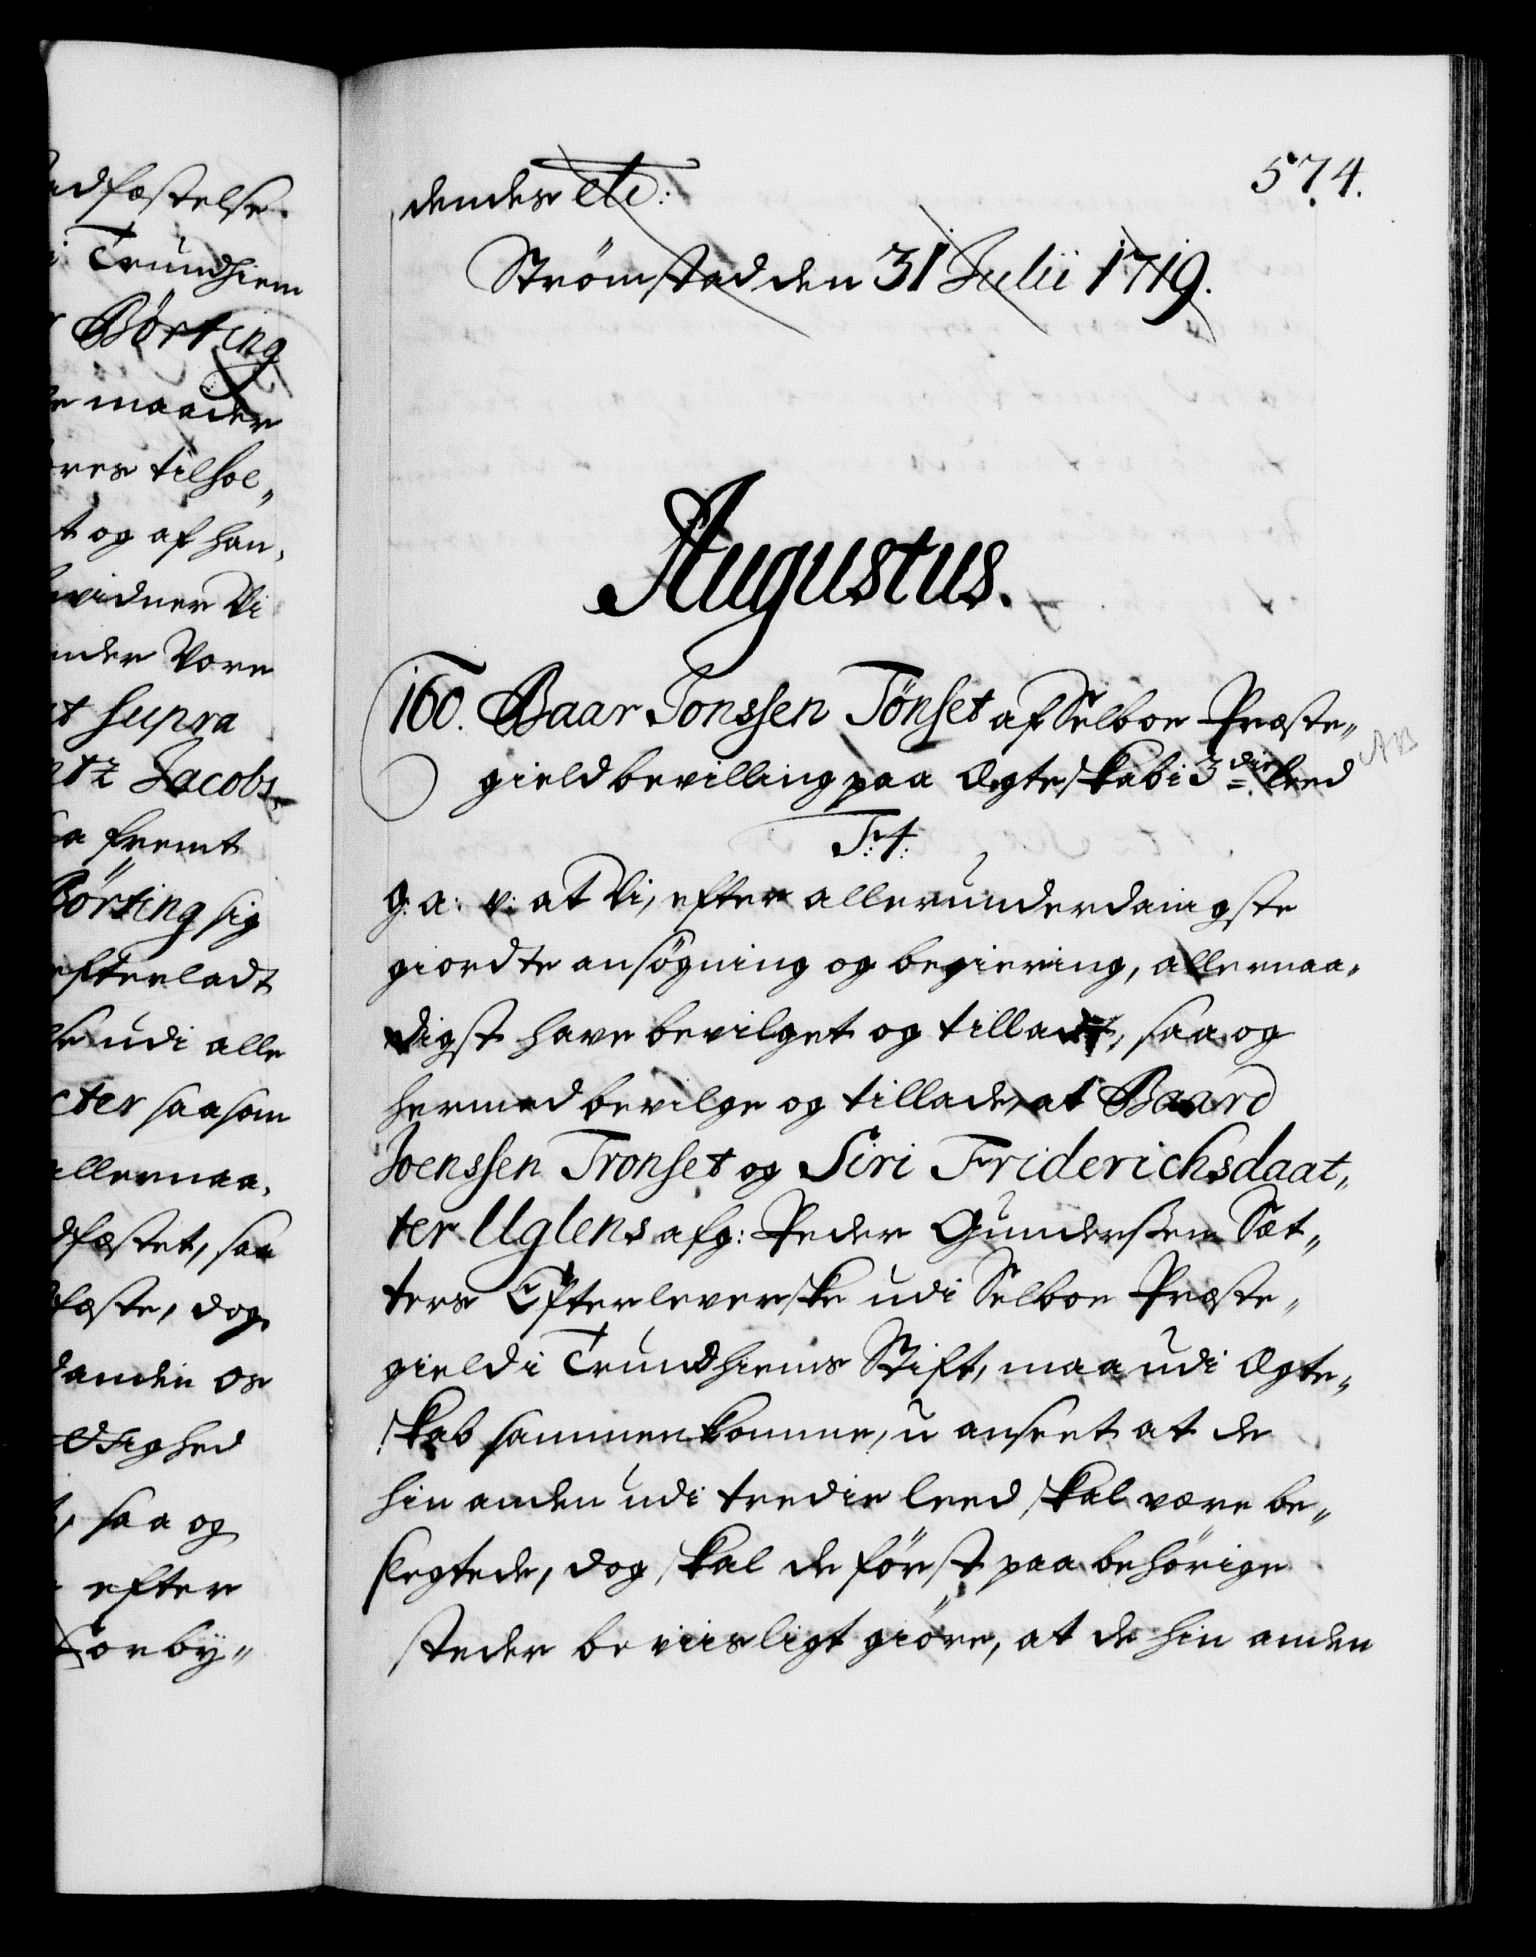 adfæstelse.
i Trundhiem
r Børting
e maader
øres tilhol„
t og afhan„
evidner Vi
under Vore
t supra
tz Jacobs
a fremt
Børting sig
efterladt
se udi alle
cter saasom
allernaa„
dfæstet, saa
fæste, dog
andin os
ltighed
, saa og
efter
Forby„
574.
dendes etc:
Strømstad den 31 Julii 1719.
Augustus.
160. Baar Jonssen Tønset af Selboe Præste„
gield bevilling paa Ægteskab i 3die leed
F:4:
G: a: v: at Vi, efter allerunderdanigste
giordte ansøgning og begiering, allernaa„
digst have bevilget og tilladt, saa og
hermed bevilge og tillade, at Baard
Joenssen Tronset og Siri Friderichsdaat„
ter Uglens afg: Peder Gunderssen Sæt„
ters Efterleverske udi Selboe Præste„
gield i Trundhiems Stift, maa udi Ægte„
skab sammenkomme, u anseet at de
hin anden udi tredie leed skal være be„
slegtede, dog skal de först paa behörige
steder beviisligt giöre, at de hin anden